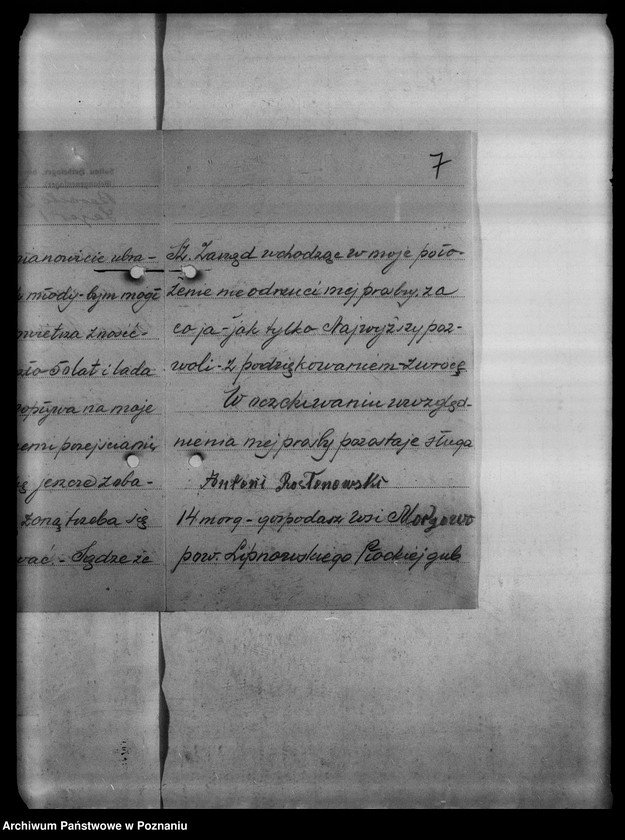 7
mianowicie ubra-
młody-bym mógł
powietrza znosić-
lat i lada
wpływa na moje
przejściami
jeszcze zoba-
żoną trzeba się
wać.- Sądzę że
Sz. Zarząd wchodząc w moje poło-
żenie nie odrzuci mej prośby, za
co ja-jak tylko Najwyższy poz-
woli- z podziękowaniem zwrócę
W oczekiwaniu uwzględ-
nienia mej prośby pozostaje sługa
Antoni
14 morg- gospodarz wsi
pow. Lipnowskiego Płockiej gub
Archiwum Państwowe w Poznaniu